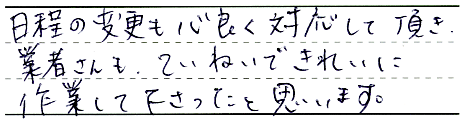 日程の変更も心良く対応して頂き.
業者さんも.ていねいできれいに
作業して下さったと思います。